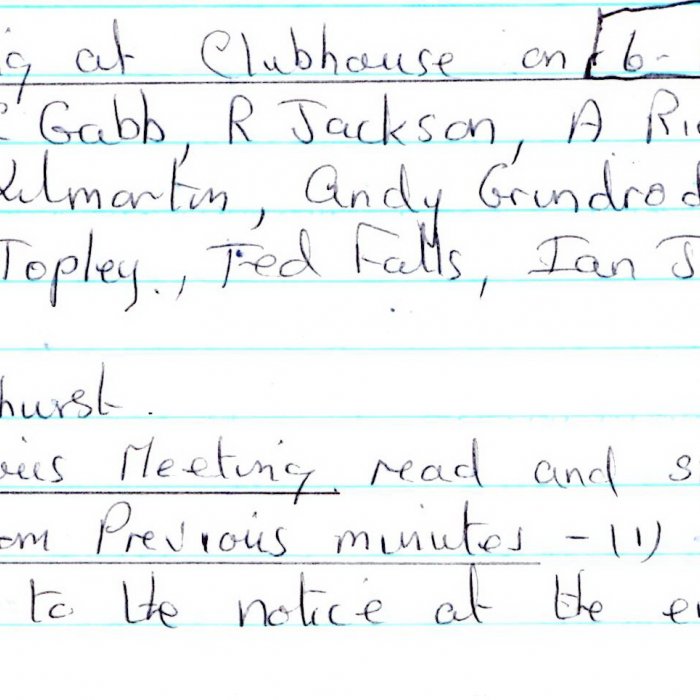 g at Clubhouse on 6-
Gabb, R Jackson, A Ri
Kilmartin, Andy Grindrod
Topley., Ted Falls, Ian J
hurst.
ious Meeting read and s
om Previous minutes - (1)
to the notice at the en